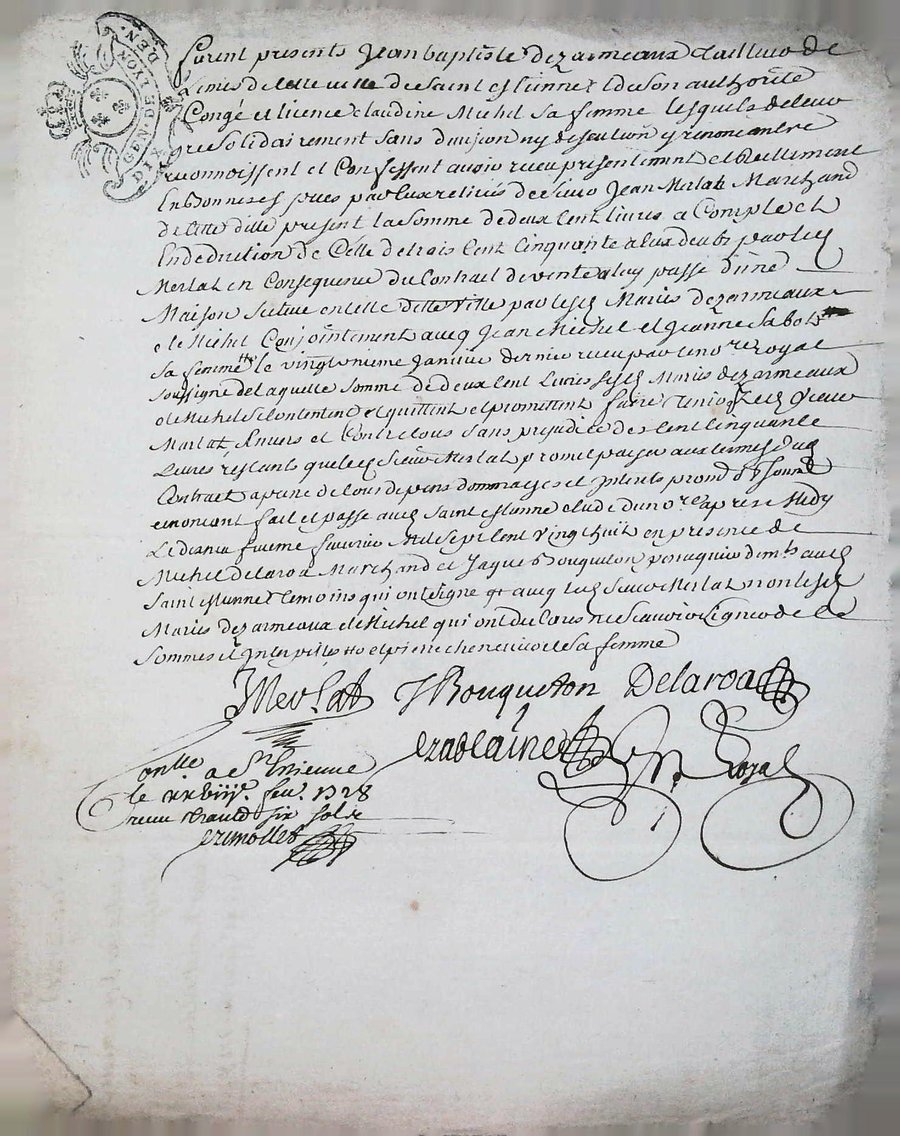 GEN. DE LYON
DIX DEN.
furent presents Jean baptiste dezarmeaux tailleur de
de cette ville de Saint estienne et de son authorité
Congé et licence claudine Michel sa femme lesquels de leur
gre Solidairement sans division ny discution y renoncant
reconnoissent et Confessent avoir receu presentement et Reellement
En bonnes especes par eux retirées de Sieur Jean Merlat Marchand
de cette ville present la Somme de deux Cent livres a Compte et
En deduction de Celle de trois Cent Cinquante a eux deubs par led
Merlat en Consequence du Contrait de vente a luy passé d'une
Maison Scitue en cette ditte Ville par lesd Mariés dezarmeaux
et Michel Conjointement avec Jean Michel et Jeanne Sabot
sa femme le vingtnieme Janvier dernier receu par le nore royal
soussigné de laquelle Somme de deux Cent Livres lesd Mariés dezarmeaux
et Michel se Contentent et quittent et promettent faire tenir quitte led Sieur
Merlat Envers et Contre tous sans prejudice des Cent Cinquante
Livres restants que led Sieur Merlat promet payer aux termes dud
Contract a peine de tous depens dommages et Interets
renoncant fait et passé aud Saint estienne etude du nore apres Midy
Le dixneufvieme fevrier Mil Sept Cent Vingt huit en presence de
Michel delaroa Marchand et Jaques Bouqueton perruquier dud
Saint estienne temoins qui ont signé avec led Sieur Merlat non lesd
Mariés dezarmeaux et Michel qui ont declaré ne Scavoir Signer de ce
Sommes et Interpellés et sa femme
J Merlat J Bouqueton Delaroa
Royal
Conlle a St Etienne
le xxviije. fev. 1728
receu six sols
Grimollet